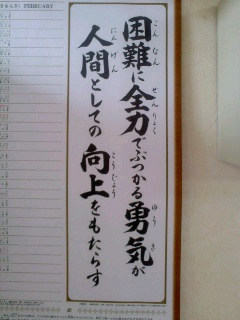 困難に全力でぶつかる勇気が
こんなん ぜんりょく ゆうき
人間としての向上をもたらす
にんげん こうじょう
FEBRUARY